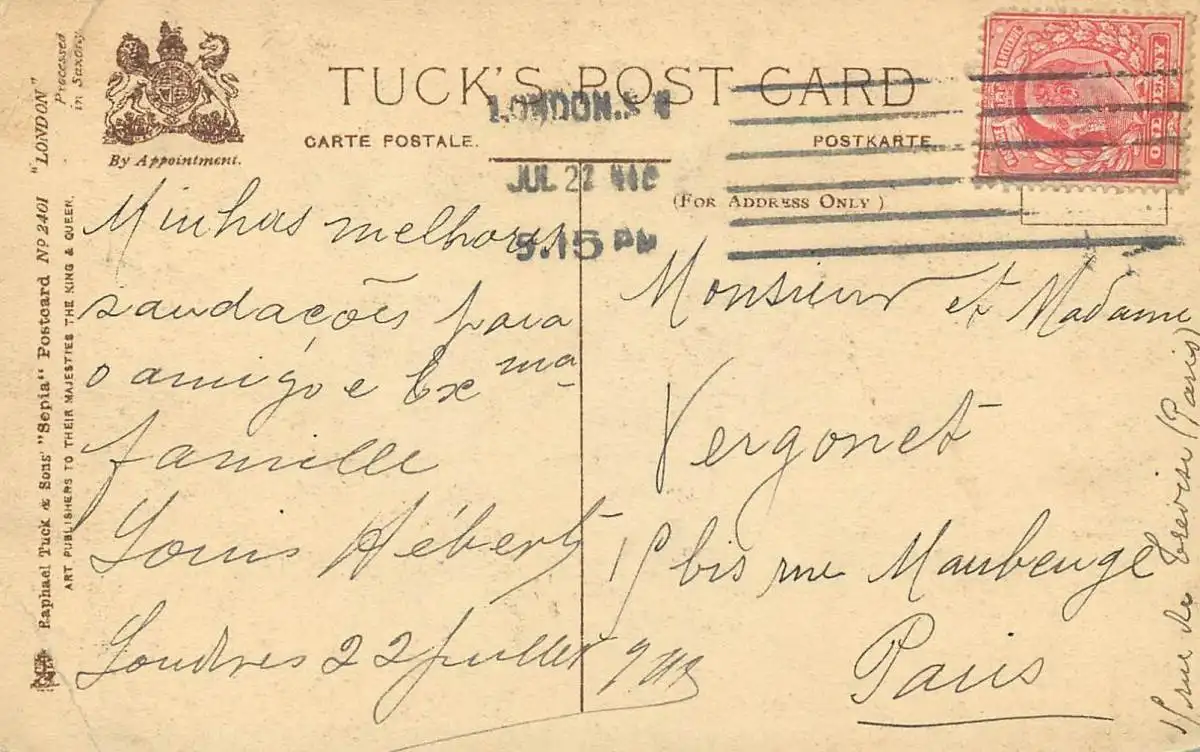 "LONDON"
Processed
in Saxony
By Appointment.
TUCK'S POST CARD
CARTE POSTALE.
POSTKARTE.
(FOR ADDRESS ONLY)
LONDON.S W
JUL 22
5.15 PM
Raphael Tuck & Sons' "Sepia" Postcard Nº 2401
ART PUBLISHERS TO THEIR MAJESTIES THE KING & QUEEN.
Minhas melhores
saudações para
o amigo e Exma
famille
Louis Hébert
Londres 22 juillet
Monsieur et Madame
Vergonet
bis rue Maubeuge
Paris
rue de Trévise (Paris)